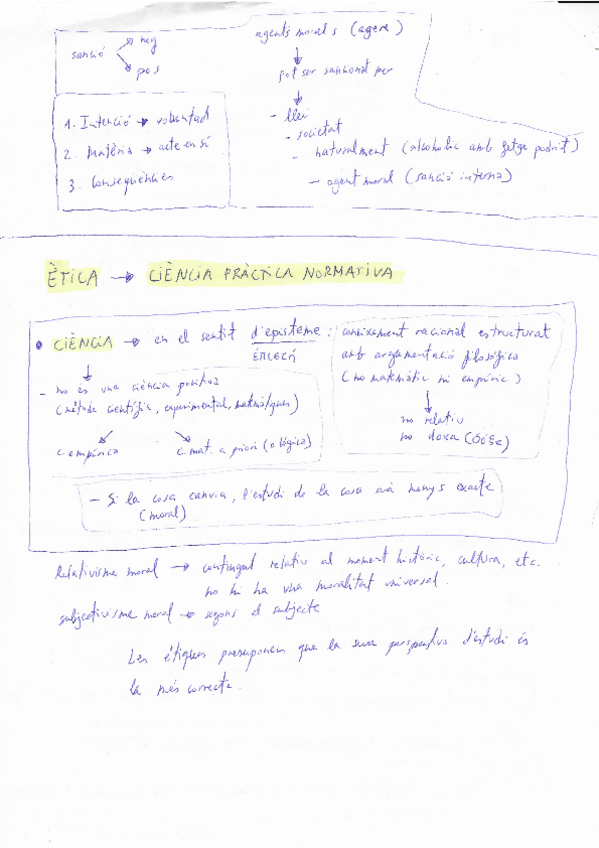 sanció
neg
pos
1. Intenció → voluntad
2. Matèria → acte en sí
3. Conseqüències
agents morals (agere)
pot ser sancionat per
- llei
- societat
- naturalment (alcoholic amb fetge podrit)
- agent moral (sanció interna)
ÈTICA → CIÈNCIA PRÀCTICA NORMATIVA
• CIÈNCIA → en el sentit d'episteme : coneixement racional estructurat
amb argumentació filosòfica
(no matemàtic ni empíric)
no relatiu
no doxa
- no és una ciència positiva
(mètode científic, experimental, matemàtiques)
c. empírica
c. mat. a priori (o lògica)
- Si la cosa canvia, l'estudi de la cosa serà menys exacte
(moral)
Relativisme moral → contingut relatiu al moment històric, cultura, etc.
no hi ha una moralitat universal.
subjectivisme moral → segons el subjecte
Les ètiques presuposen que la seva perspectiva d'estudi és
la més correcta.